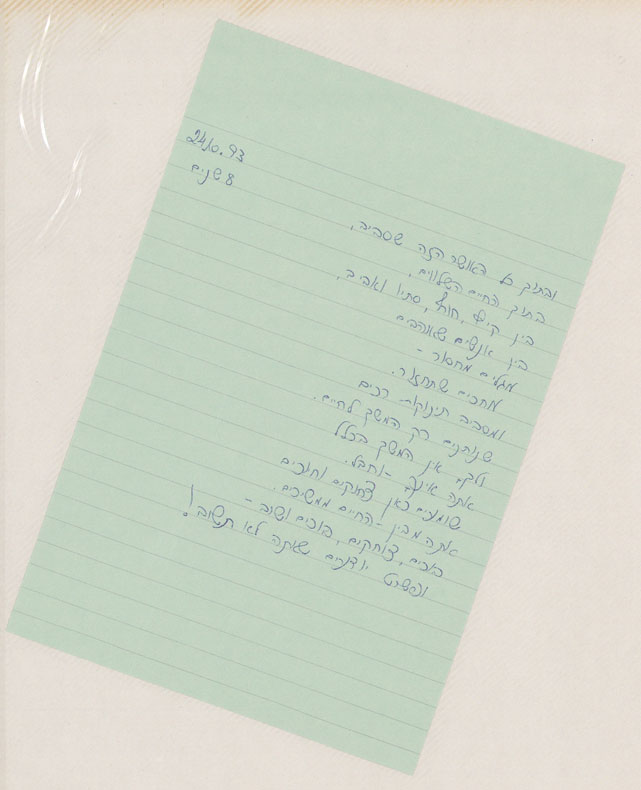 24.10.93
8 שנים
ובתוך כל האושר הזה שסביב,
בתוך החיים השלווים,
בין קיץ, חורף, סתיו ואביב,
בין אנשים שאוהבים
מגלים מחסור -
מחכים שתחזור.
ומסביב תינוקות רכים
שנותנים רק המשך לחיים.
ולך אין המשך בכלל
אתה אינך - וחבל.
שומעים כאן צחוקים וחיוכים
אתה מבין - החיים ממשיכים.
בוכים, צוחקים, בוכים ושוב -
ופשוט יודעים שאתה לא תשוב!